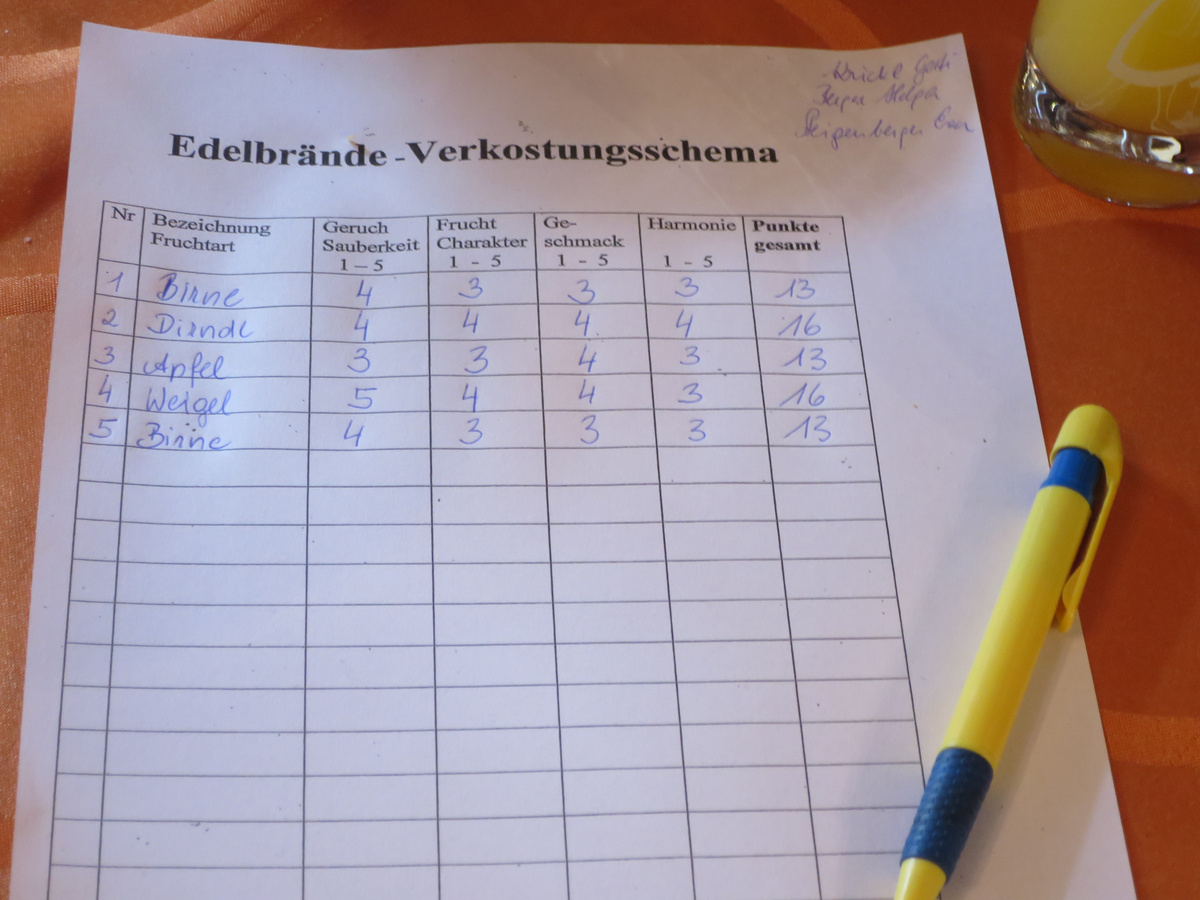 Berger Helga
Edelbrände - Verkostungsschema
Nr Bezeichnung Fruchtart Geruch Sauberkeit 1 – 5 Frucht Charakter 1 - 5 Ge- schmack 1 - 5 Harmonie 1 - 5 Punkte gesamt
1 Birne 4 3 3 3 13
2 Dirndl 4 4 4 4 16
3 Apfel 3 3 4 3 13
4 Weigel 5 4 4 3 16
5 Birne 4 3 3 3 13